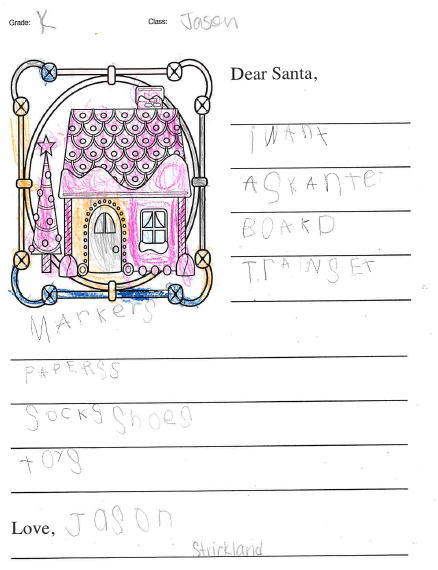 Grade: K Class: Jason
Dear Santa,
I WANT
A SKANTE
BOARD
TRAINSET
MArKerS
PAPERSS
SOCKS ShoeS
toyS
Love, JASON
Strickland